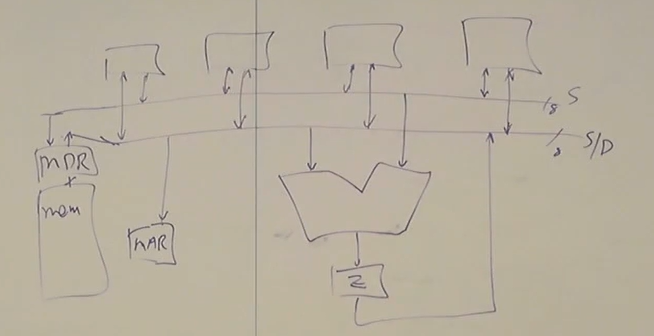 8 S
8 S/D
MDR
mem
MAR
Z